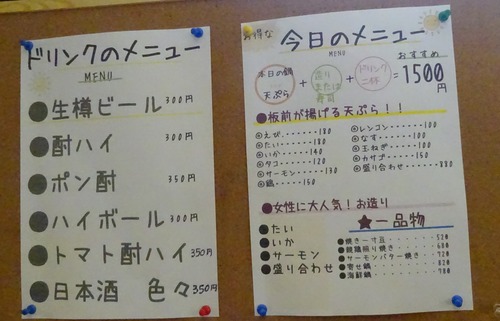 ドリンクのメニュー
MENU
●生樽ビール 300円
●酎ハイ 300円
●ポン酎 350円
●ハイボール 300円
●トマト酎ハイ 350円
●日本酒 色々 350円
お得な 今日のメニュー
MENU
おすすめ
本日の鍋 天ぷら + 造り または 寿司 + ドリンク 二杯 = 1500円
●板前が揚げる天ぷら!!
◎えび......180
◎たい......180
◎いか......140
◎タコ......120
◎サーモン......130
◎鶏......150
◎レンコン......100
◎なす......100
◎玉ねぎ......100
◎カサゴ......150
◎盛り合わせ......880
●女性に大人気!お造り
●たい
●いか
●サーモン
●盛り合わせ
★一品物
●焼き一寸豆......520
●親鶏照り焼き......680
●サーモンバター焼き......720
●寄せ鍋......820
●海鮮鍋......980